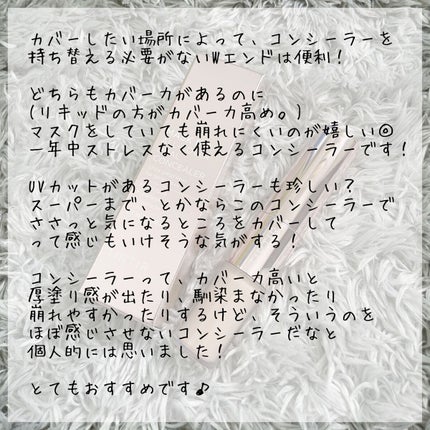 カバーしたい場所によって、コンシーラーを
持ち替える必要がないWエンドは便利！
どちらもカバー力があるのに
(リキッドの方がカバー力高め。)
マスクをしていても崩れにくいのが嬉しい◎
一年中ストレスなく使えるコンシーラーです！
UVカットがあるコンシーラーも珍しい？
スーパーまで、とかならこのコンシーラーで
ささっと気になるところをカバーして
って感じもいけそうな気がする！
コンシーラーって、カバー力高いと
厚塗り感が出たり、馴染まなかったり
崩れやすかったりするけど、そういうのを
ほぼ感じさせないコンシーラーだなと
個人的には思いました！
とてもおすすめです♪